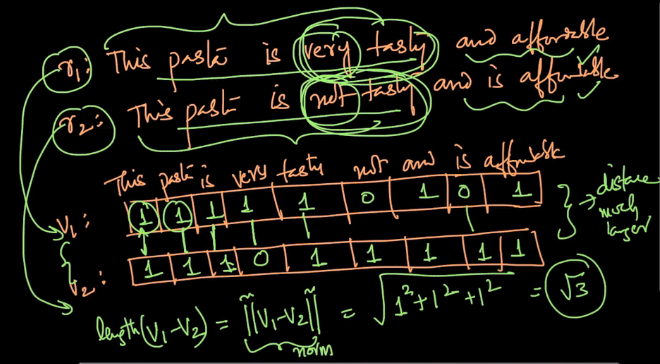 r₁: This pasta is very tasty and affordable
r₂: This pasta is not tasty and is affordable
This pasta is very tasty not and is affordable
v₁: 1 1 1 1 1 0 1 0 1 } → distance much larger
v₂: 1 1 1 0 1 1 1 1 1
length(v₁-v₂) = ||v₁-v₂|| = √1²+1²+1² = √3
norm